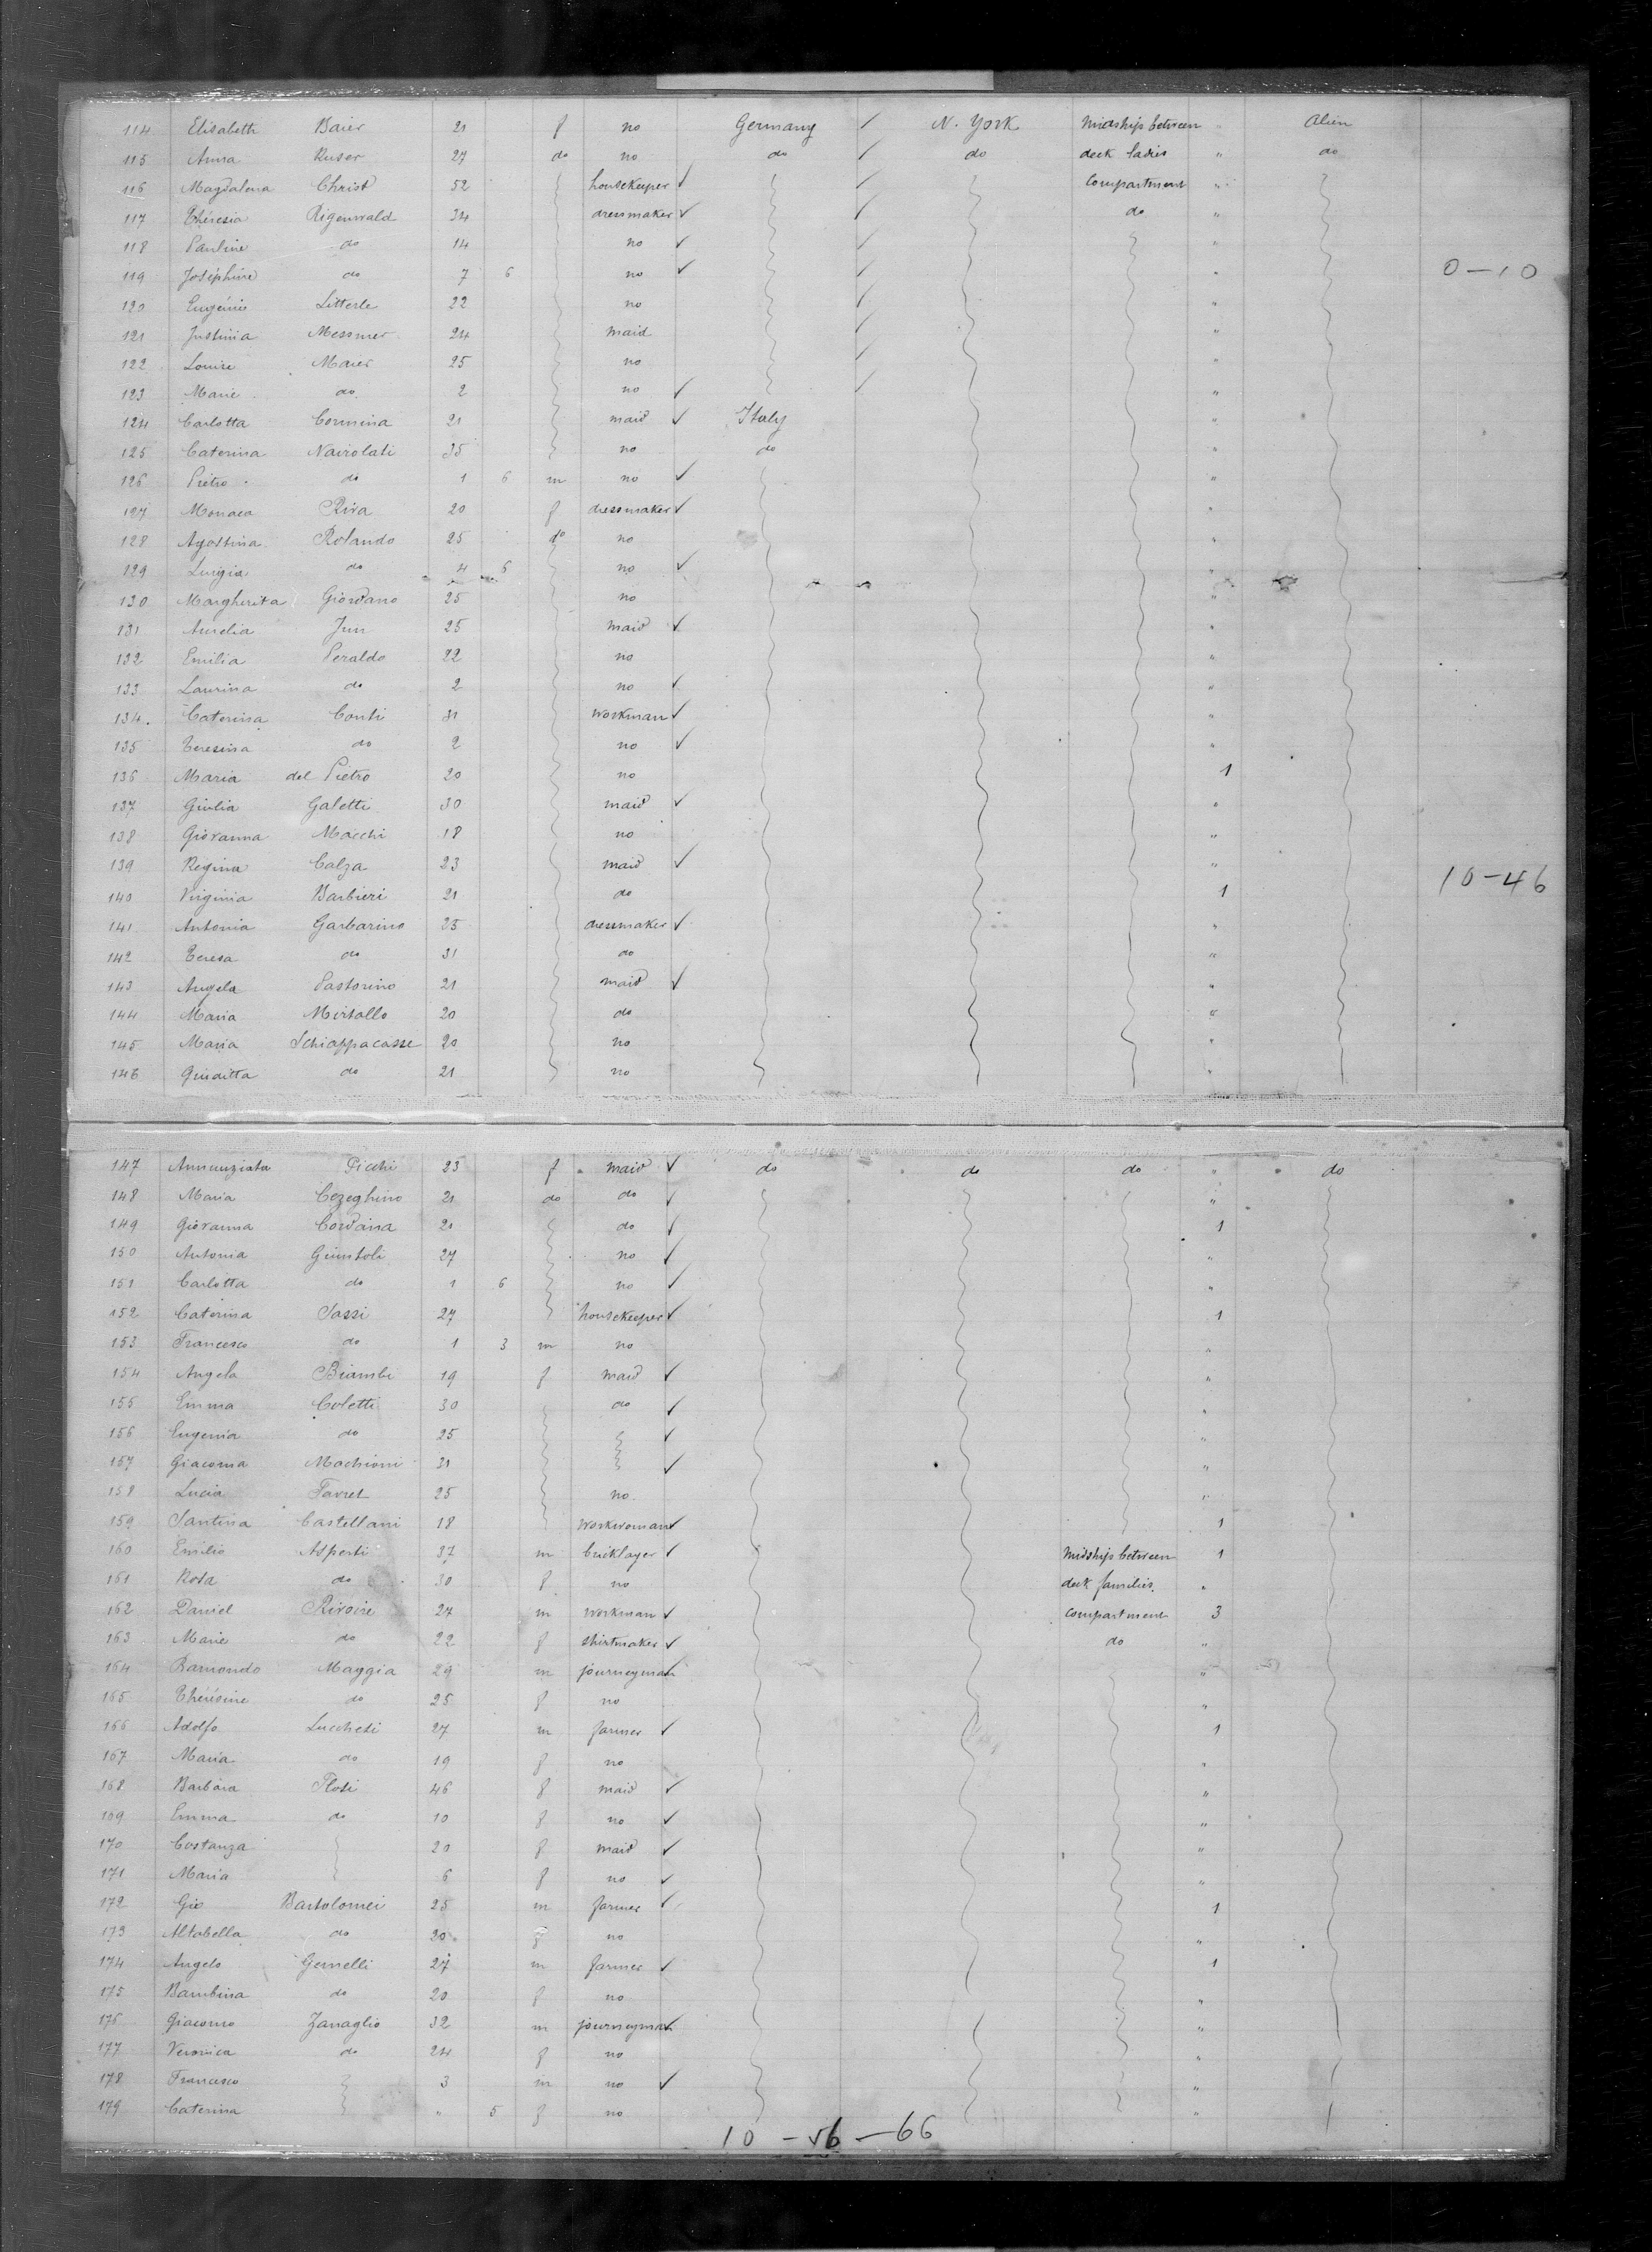 114 Elisabeth Baier 21 f no Germany / N. York Midship between " Alien
115 Anna Ruser 27 do no do / do deck ladies " do
116 Magdalena Christ 52 housekeeper ✓ / compartment "
117 Thérésia Rigenwald 34 dressmaker ✓ / do "
118 Pauline do 14 no ✓ / "
119 Joséphine do 7 6 no ✓ / " 0-10
120 Eugénie Litterle 22 no / "
121 Justinia Messmer 24 maid / "
122 Louise Maier 25 no / "
123 Marie do 2 no ✓ / "
124 Carlotta Cormina 21 maid ✓ Italy "
125 Caterina Nairolati 35 no do "
126 Pietro do 1 6 m no ✓ "
127 Monaca Riva 20 f dressmaker ✓ "
128 Agostina Rolando 25 do no "
129 Luigia do 4 6 no ✓ "
130 Margherita Giordano 25 no "
131 Aurelia Jun 25 maid ✓ "
132 Emilia Peraldo 22 no "
133 Laurina do 2 no ✓ "
134. Caterina Conti 31 workman ✓ "
135 Teresina do 2 no ✓ "
136 Maria del Pietro 20 no 1
137 Giulia Galetti 30 maid ✓ "
138 Giovanna Macchi 18 no "
139 Regina Calza 23 maid ✓ "
140 Virginia Barbieri 21 do 1 10-46
141 Antonia Garbarino 35 dressmaker ✓ "
142 Teresa do 31 do "
143 Angela Pastorino 21 maid ✓ "
144 Maria Mirtallo 20 do "
145 Maria Schiappacasse 20 no "
146 Giuditta do 21 no "
147 Annunziata Picchi 23 f maid ✓ do do do " do
148 Maria Cezeghino 21 do do ✓ "
149 Giovanna Cordaina 21 do ✓ 1
150 Antonia Giuntoli 27 no ✓ "
151 Carlotta do 1 6 no ✓ "
152 Caterina Sassi 27 housekeeper ✓ 1
153 Francesco do 1 3 m no "
154 Angela Biambi 19 f maid ✓ "
155 Emma Coletti 30 do ✓ "
156 Eugenia do 25 ✓ "
157 Giacoma Machioni 31 ✓ "
158 Lucia Favret 25 no "
159 Santina Castellani 18 workwoman ✓ 1
160 Emilio Asperti 37 m bricklayer ✓ Midship between 1
161 Rosa do 30 f no deck families "
162 Daniel Rivoire 27 m workman ✓ compartment 3
163 Marie do 22 f shirtmaker ✓ do "
164 Ramondo Maggia 29 m journeyman "
165 Thérésine do 25 f no "
166 Adolfo Luccheti 27 m farmer ✓ 1
167 Maria do 19 f no "
168 Barbara Plosi 46 f maid ✓ "
169 Emma do 10 f no ✓ "
170 Costanza 20 f maid ✓ "
171 Maria 6 f no ✓ "
172 Gio Bartolomei 25 m farmer ✓ 1
173 Altabella do 20 f no "
174 Angelo Gemelli 27 m farmer ✓ 1
175 Bambina do 20 f no "
176 Giacomo Zanaglio 32 m journeyman ✓ "
177 Veronica do 24 f no "
178 Francesco 3 m no ✓ "
179 Caterina " 5 f no "
10 - 56 - 66